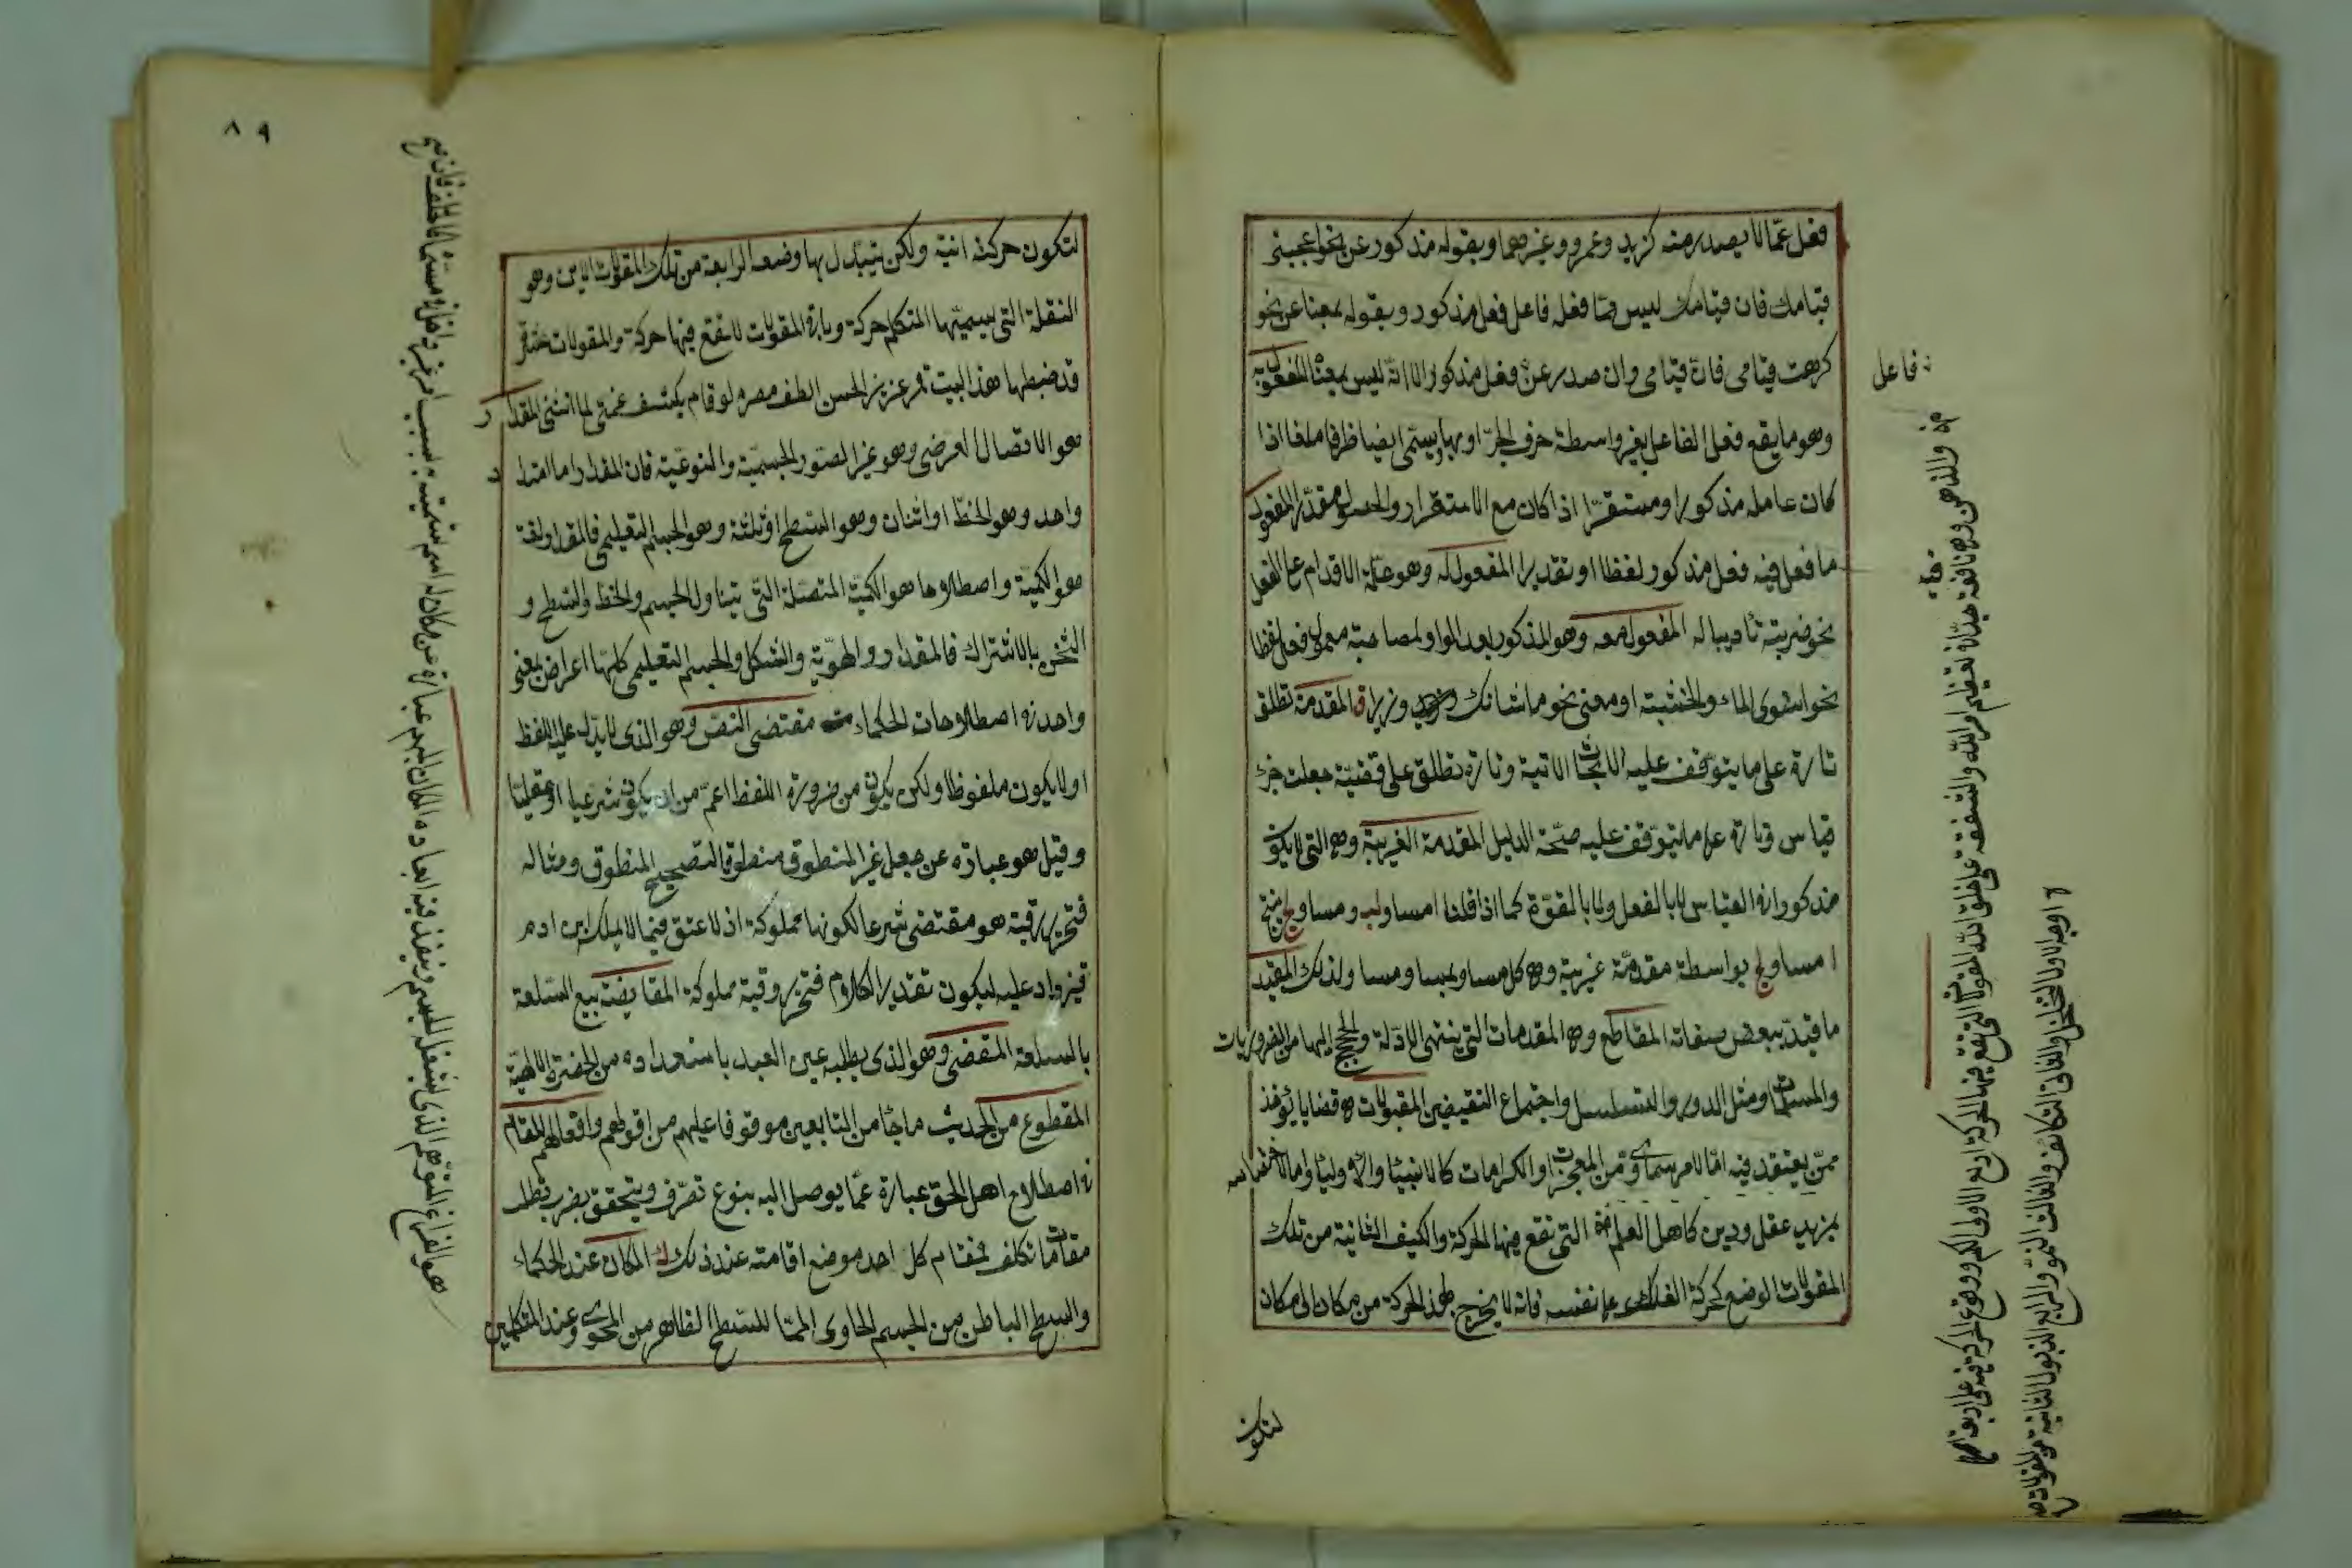 فعل عمّا لا يصدر منه كزيد وعمرو وغيرهما وبقوله مذكور عن نحو اعجبنى
قيامك فان قيامك ليس ممّا فعله فاعل فعل مذكور وبقوله بمعناه عن نحو
كرهت قيامى فان قيامى وان صدر عن فاعل فعل مذكور الا انه ليس بمعناه المفعول به
وهو ما يقع فعل الفاعل بغير واسطة حرف الجرّ او بها ويسمّى ايضا ظرفا ملغا اذا
كان عامله مذكورا ومستقرّا اذا كان مع الاستقرار والحصول مقدّرا المفعول
ما فعل فيه فعل مذكور لفظا او تقديرا المفعول له وهو علّة الاقدام على الفعل
نحو ضربته تأديبا له المفعول معه وهو المذكور بعد الواو لمصاحبة معمول فعل لفظا
نحو استوى الماء والخشبة او معنى نحو ما شانك وزيدا المقدمة تطلق
تارة على ما يتوقف عليه الابحاث الاتية وتارة تطلق على قضيّة جعلت جزء
قياس وتارة على ما يتوقف عليه صحّة الدليل المقدمة الغريبة وهى التى لا يكون
مذكورا فى القياس لا بالفعل ولا بالقوّة كما اذا قلنا ا مساو لب وب مساو لج ينتج
ا مساو لج بواسطة مقدمّة غريبة وهى كل مساو لمساو مساو لذلك المقيد
ما قيد ببعض صفاته المقاطع وهى المقدمات التى ينتهى الادلة والحجج اليها من الضروريات
والمسلمات ومثل الدور والتسلسل واجتماع النقيضين المقبولات هى قضايا يؤخذ
ممّن يعتقد فيه امّا لامر سماوى من المعجزات او الكرامات كالانبياء والاولياء واما لاختصاصه
بمزيد عقل ودين كاهل العلم التى تقع فيها الحركة والكيف الثانية من تلك
المقولات الوضع كحركة الفلك على نفسه فانه لا يخرج بهذه الحركة من مكان الى مكان
لتكون
فاعل
فيه
والزهد وهى نافعة جدّا فى تعظيم امر الله والشفقة على خلق الله المقولات التى تقع فيها الحركة اربع الاولى الكم ووقوع الحركة فيه على اربعة اوجه
الاول التخلخل والثانى التكاثف والثالث النموّ والرابع الذبول الثانية من المقولات
٨٩
لتكون حركته اينية ولكن يتبدّل بها وضعه الرابعة من تلك المقولات الاين وهو
النقلة التى يسميّها المتكلم حركة وباقى المقولات لا تقع فيها حركة والمقولات عشرة
قد ضبطها هذا البيت قمر عزيز الحسن الطف مصره لو قام يكشف غمّتى لما انثنى المقدار
هو الاتصال العرضى وهو غير الصورة الجسميّة والنوعيّة فان المقدار اما امتداد
واحد وهو الخطّ او اثنان وهو السطح او ثلثة وهو الجسم التعليمى فالمقدار لغة
هو الكميّة واصطلاحا هو الكميّة المتصلة التى تتناول الجسم والخط والسطح و
الثخن بالاشتراك فالمقدار والهويّة والشكل والجسم التعليمى كلّها اعراض بمعنى
واحد فى اصطلاحات الحكماء مقتضى النصّ وهو الذى لا يدّل عليه اللفظ
او لا يكون ملفوظا ولكن يكون من ضرورة اللفظ اعمّ من ان يكون شرعيا او عقليّا
وقيل هو عبارة عن جعل غير المنطوق منطوقا لتصحيح المنطوق ومثاله
فتحرير رقبة هو مقتضى شرعا لكونها مملوكة اذ لا عتق فيما لا يملك ابن ادم
فيزاد عليه ليكون تقدير الكلام فتحرير رقبة مملوكة المقايضة بيع السّلعة
بالسلعة المقضى وهو الذى يطلبه عين العبد باستعداده من الحضرة الالهيّة
المقطوع من الحديث ما جاء من التابعين موقوفا عليهم من اقوالهم وافعالهم المقام
فى اصطلاح اهل الحق عبارة عمّا يوصل اليه بنوع تصرّف ويتحقق بضرب تطلب
مقاساة تكلف فمقام كل احد موضع اقامته عند ذلك المكان عند الحكماء
والسطح الباطن من الجسم الحاوى المماس للسطح الظاهر من المحوى وعند المتكلمين
هو الفراغ المتوهم الذى يشغله الجسم وينفذ فيه ابعاده المكان المبهم عبارة عن مكان له اسم تسميته به بسبب امر غير داخل فى مسمّاه كالخلف فان تسمية